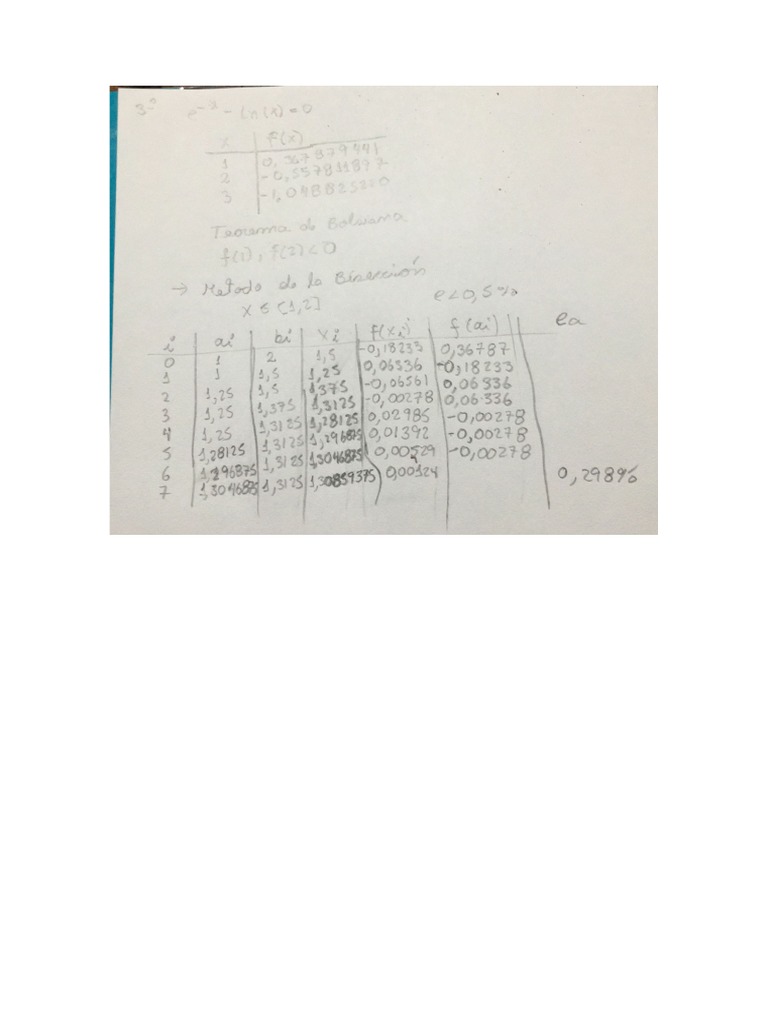 3.º e^-x - ln(x) = 0
x | f(x)
1 | 0,367879441
2 | -0,557811897
3 | -1,048825220
Teorema de Bolzano
f(1) . f(2) < 0
→ Metodo de la Bisección
x ε [1,2] e < 0,5%
i | ai | bi | xi | f(xi) | f(ai) | ea
0 | 1 | 2 | 1,5 | -0,18233 | 0,36787
1 | 1 | 1,5 | 1,25 | 0,06336 | -0,18233
2 | 1,25 | 1,5 | 1,375 | -0,06561 | 0,06336
3 | 1,25 | 1,375 | 1,3125 | -0,00278 | 0,06336
4 | 1,25 | 1,3125 | 1,28125 | 0,02985 | -0,00278
5 | 1,28125 | 1,3125 | 1,296875 | 0,01392 | -0,00278
6 | 1,296875 | 1,3125 | 1,3046875 | 0,00529 | -0,00278
7 | 1,3046875 | 1,3125 | 1,30859375 | 0,00124 | 0,298%